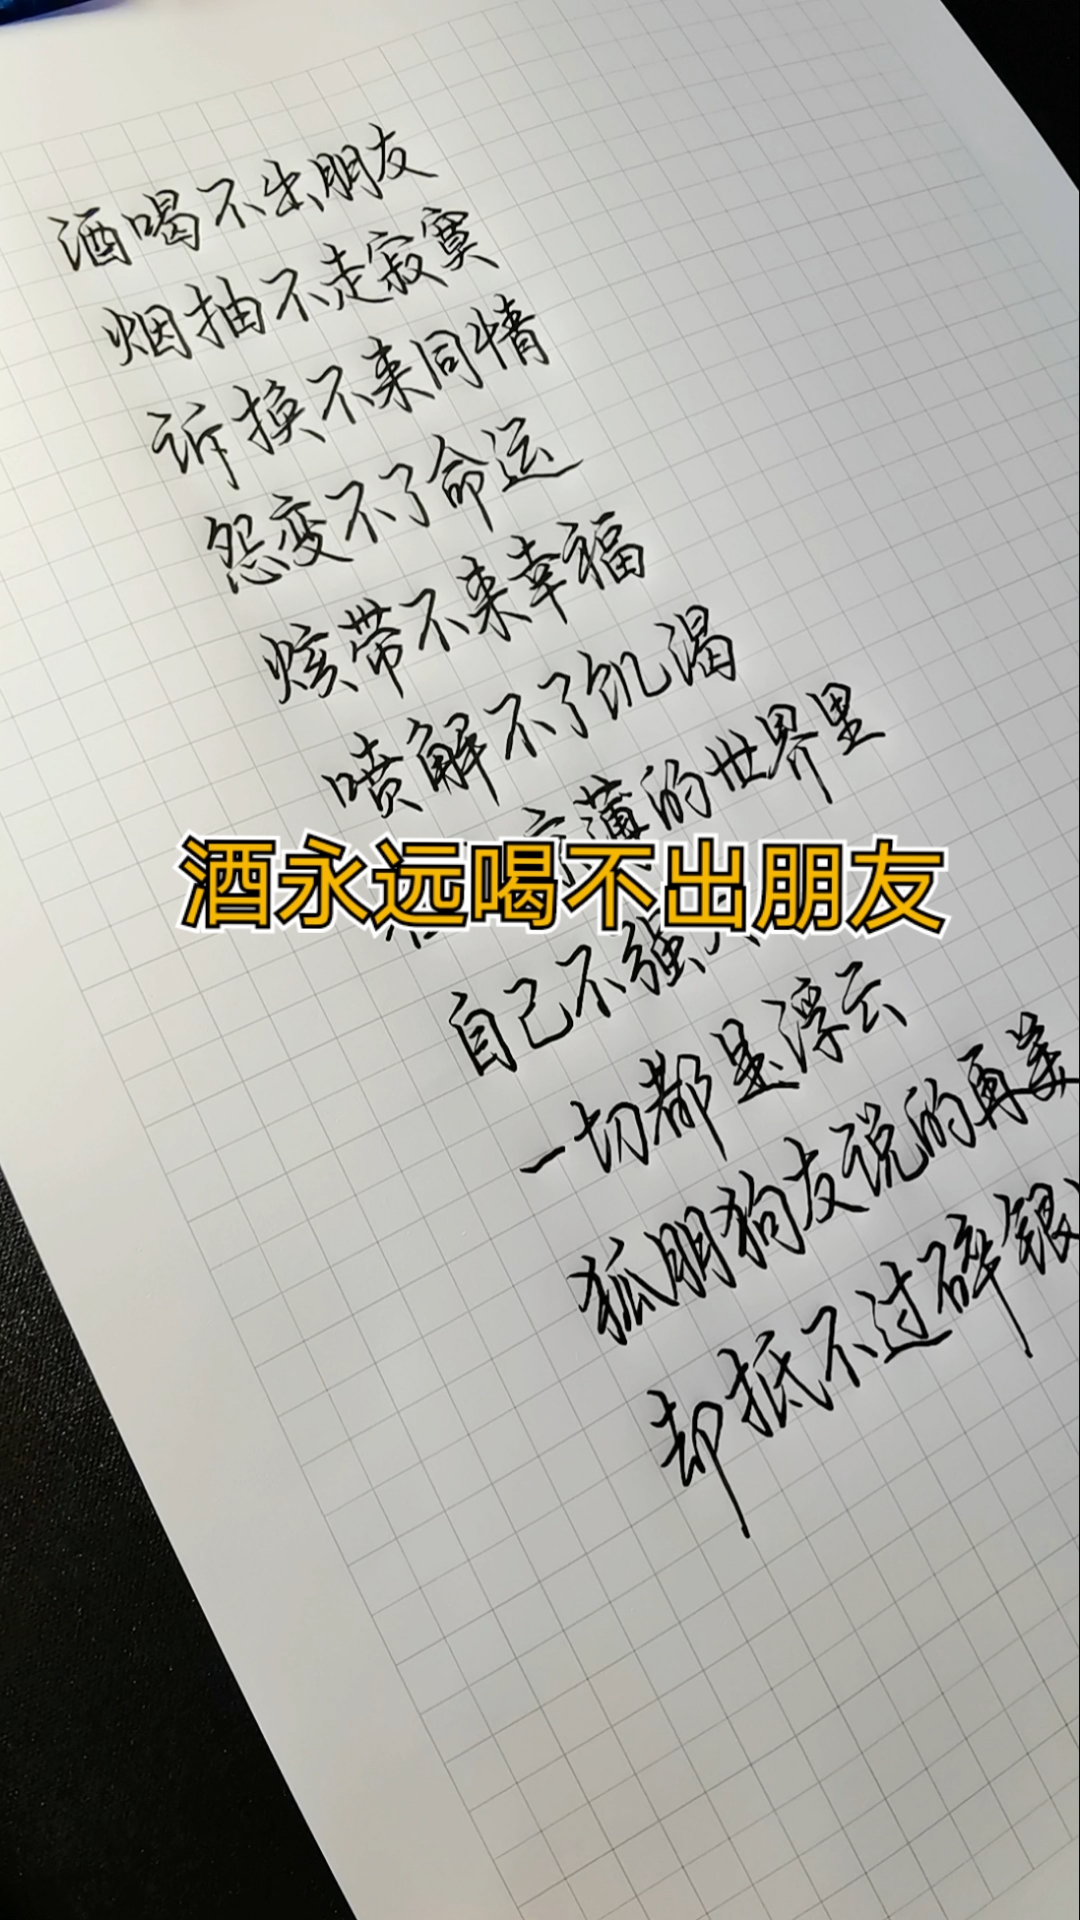 酒喝不出朋友
烟抽不走寂寞
诉换不来同情
怨变不了命运
炫带不来幸福
喷解不了饥渴
薄的世界里
酒永远喝不出朋友
自己不强
一切都是浮云
狐朋狗友说的再美
却抵不过碎银